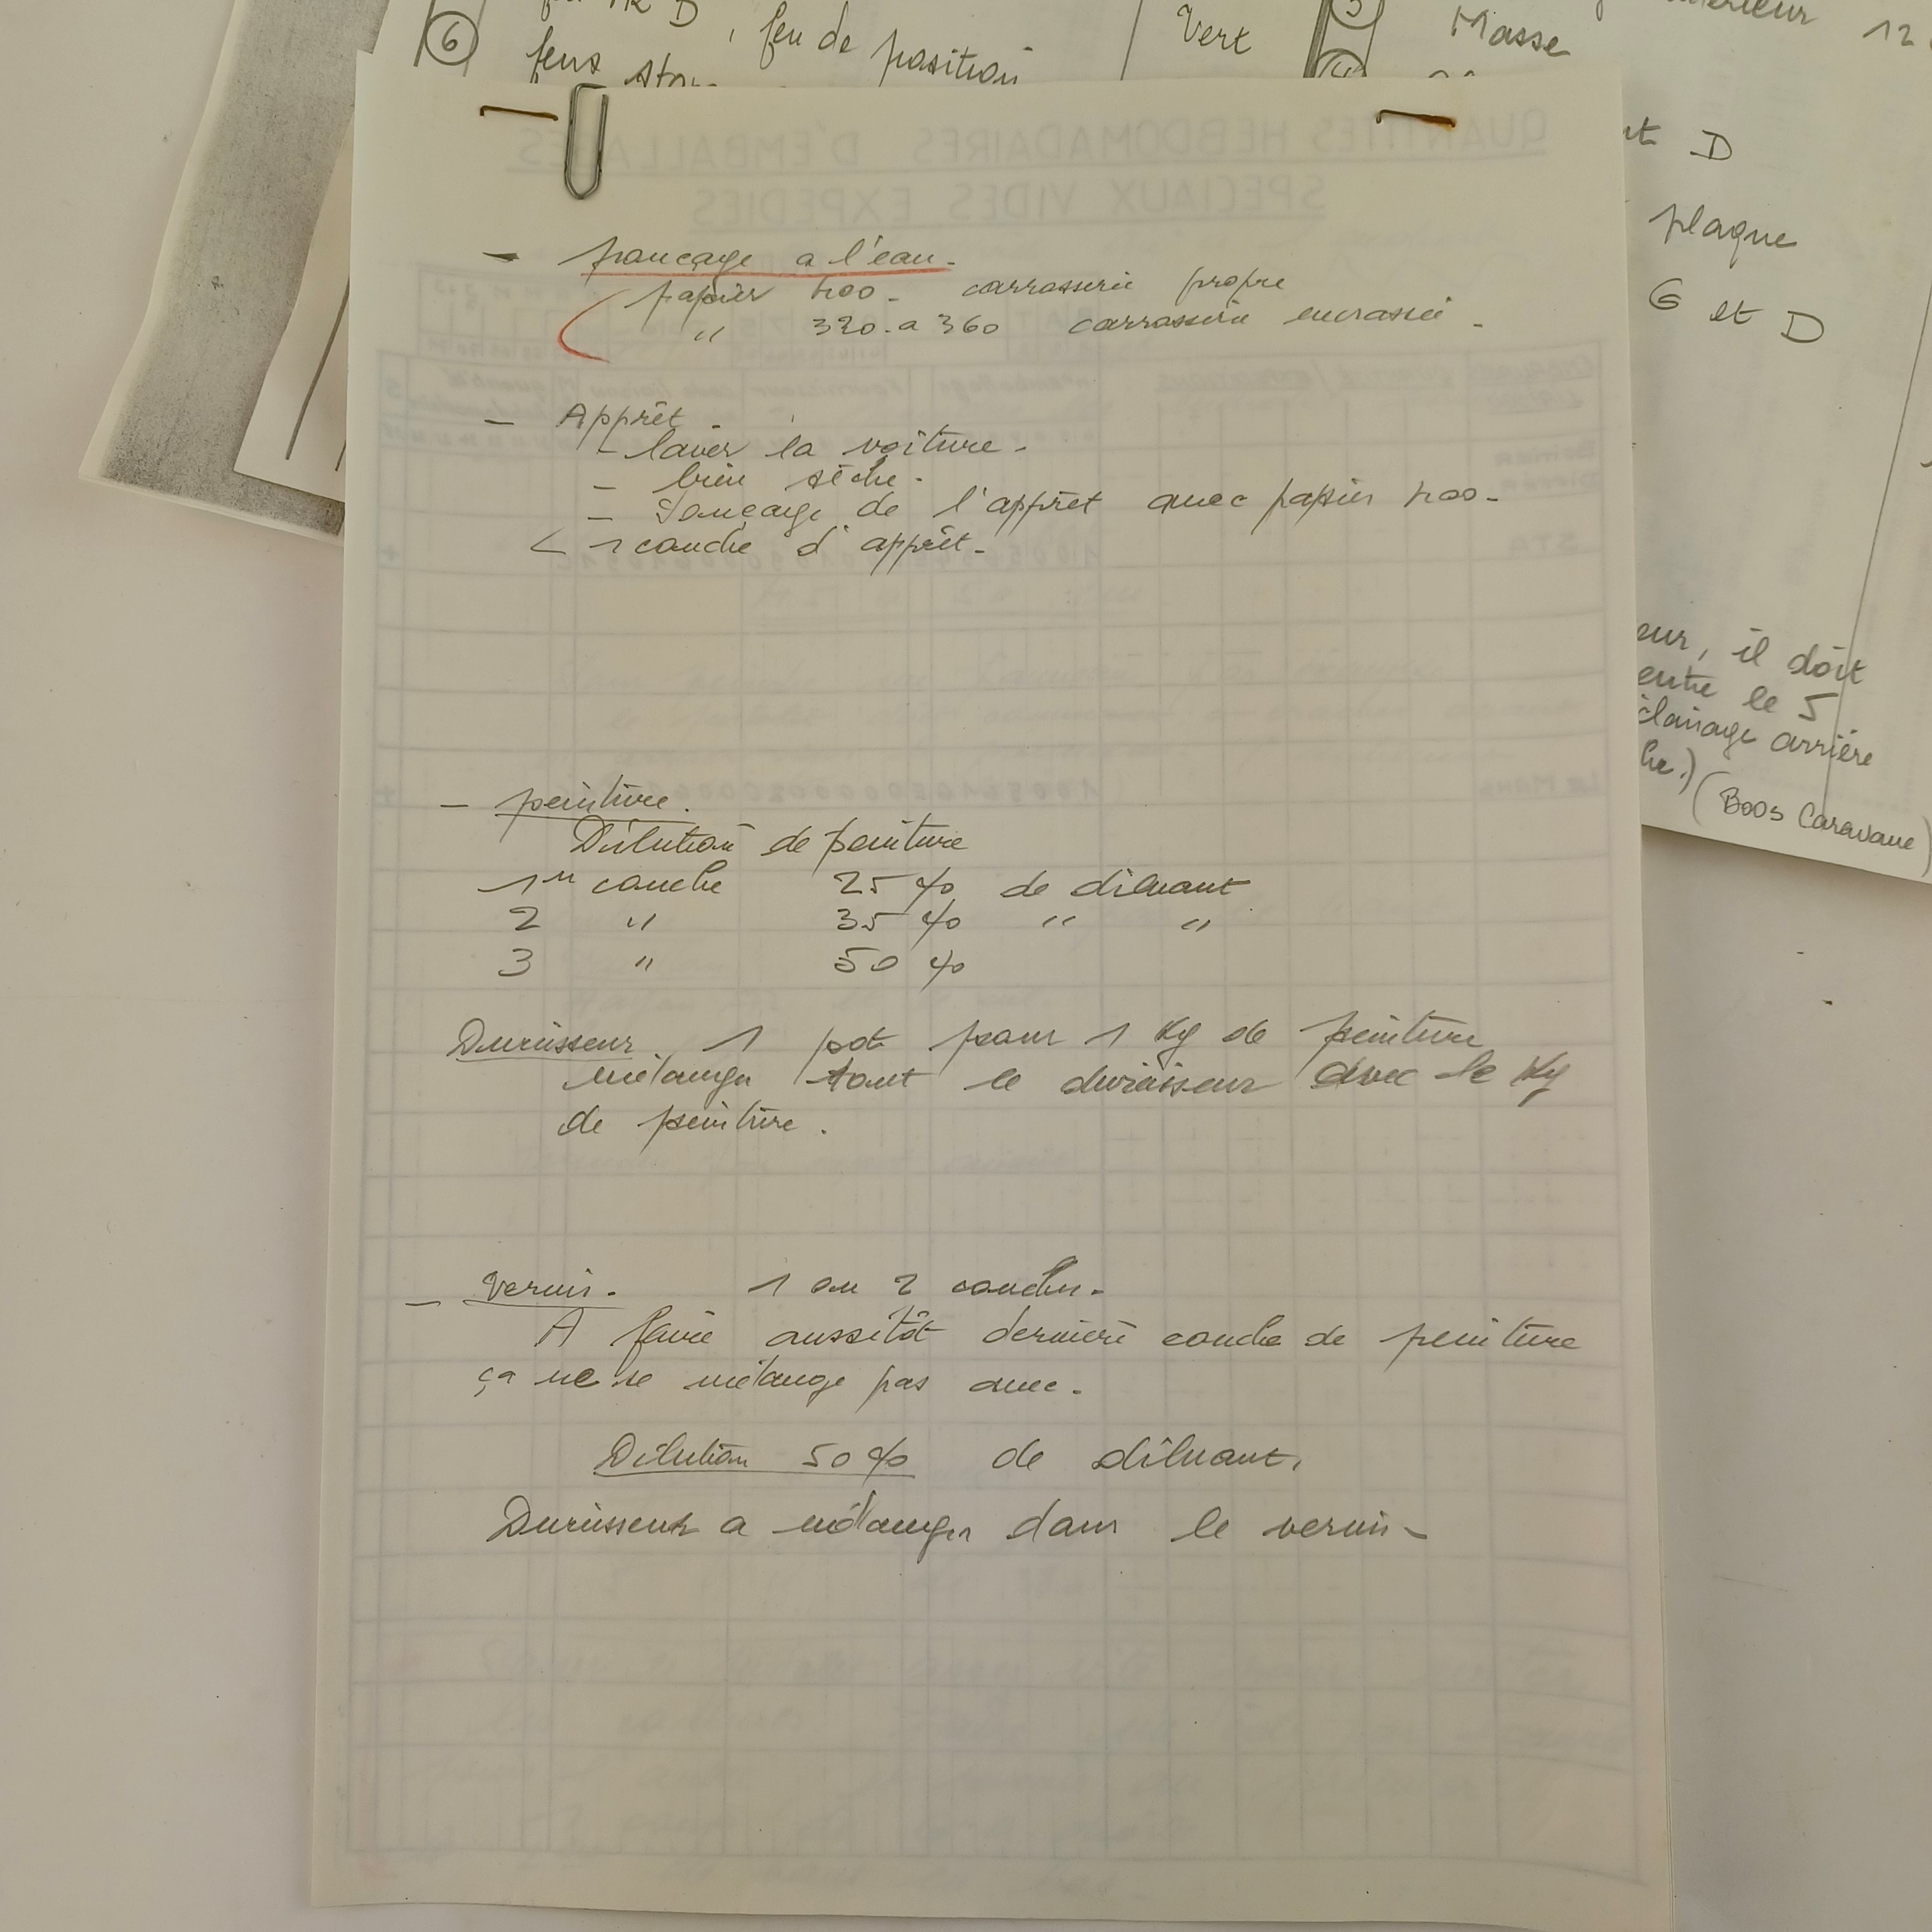 6
feux stop
, feu de position
Vert
Masse
12
nt D
plaque
G et D
eur, il doit
entre le 5
éclairage arrière
he.) (Boos Caravane)
- poncage a l'eau.
papier 400 - carrosserie propre
" 320 - a 360 carrosserie encrassée -
- Apprêt
- laver la voiture -
- bien sèche -
- Ponçage de l'apprêt avec papier 400 -
< 1 couche d'apprêt -
- peinture.
Dilution de peinture
1re couche 25 % de diluant
2 " 35 % " "
3 " 50 %
Durisseur. 1 pot pour 1 Kg de peinture
mélanger tout le durisseur avec le Kg
de peinture.
- Vernis. 1 ou 2 couches.
A faire aussitôt dernière couche de peinture
ça ne se mélange pas avec.
Dilution 50 % de diluant.
Durisseur a mélanger dans le vernis -
QUANTITES HEBDOMADAIRES D'EMBALLAGES
SPECIAUX VIDES EXPEDIES